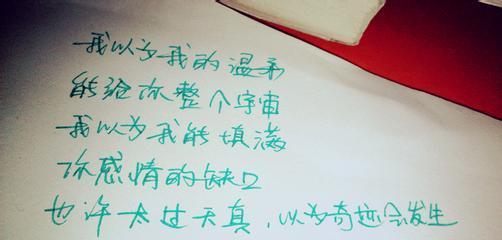 我以为我的温柔
能给你整个宇宙
我以为我能填满
你感情的缺口
也许太过天真，以为奇迹会发生